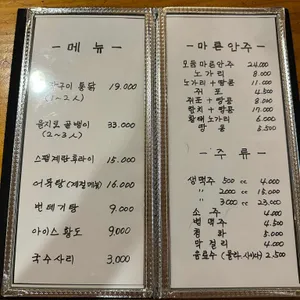 - 메 뉴 -
구이 통닭 19.000
(1~2人)
을지로 골뱅이 33.000
(2~3人)
스팸계란후라이 15.000
어묵탕 (계절메뉴) 16.000
번데기탕 9.000
아이스 황도 9.000
국수사리 3.000
- 마른안주 -
모듬 마른안주 24.000
노가리 8.000
노가리 + 땅콩 11.000
쥐포 4.500
쥐포 + 땅콩 8.000
한치 + 땅콩 17.000
황태 노가리 6.000
땅콩 5.500
- 주류 -
생맥주 500 cc 4.000
" 2.000 cc 15.000
" 3.000 cc 23.000
소주 4.000
병맥주 4.500
청하 5.000
막걸리 4.000
음료수 (콜라. 사이다) 2.500